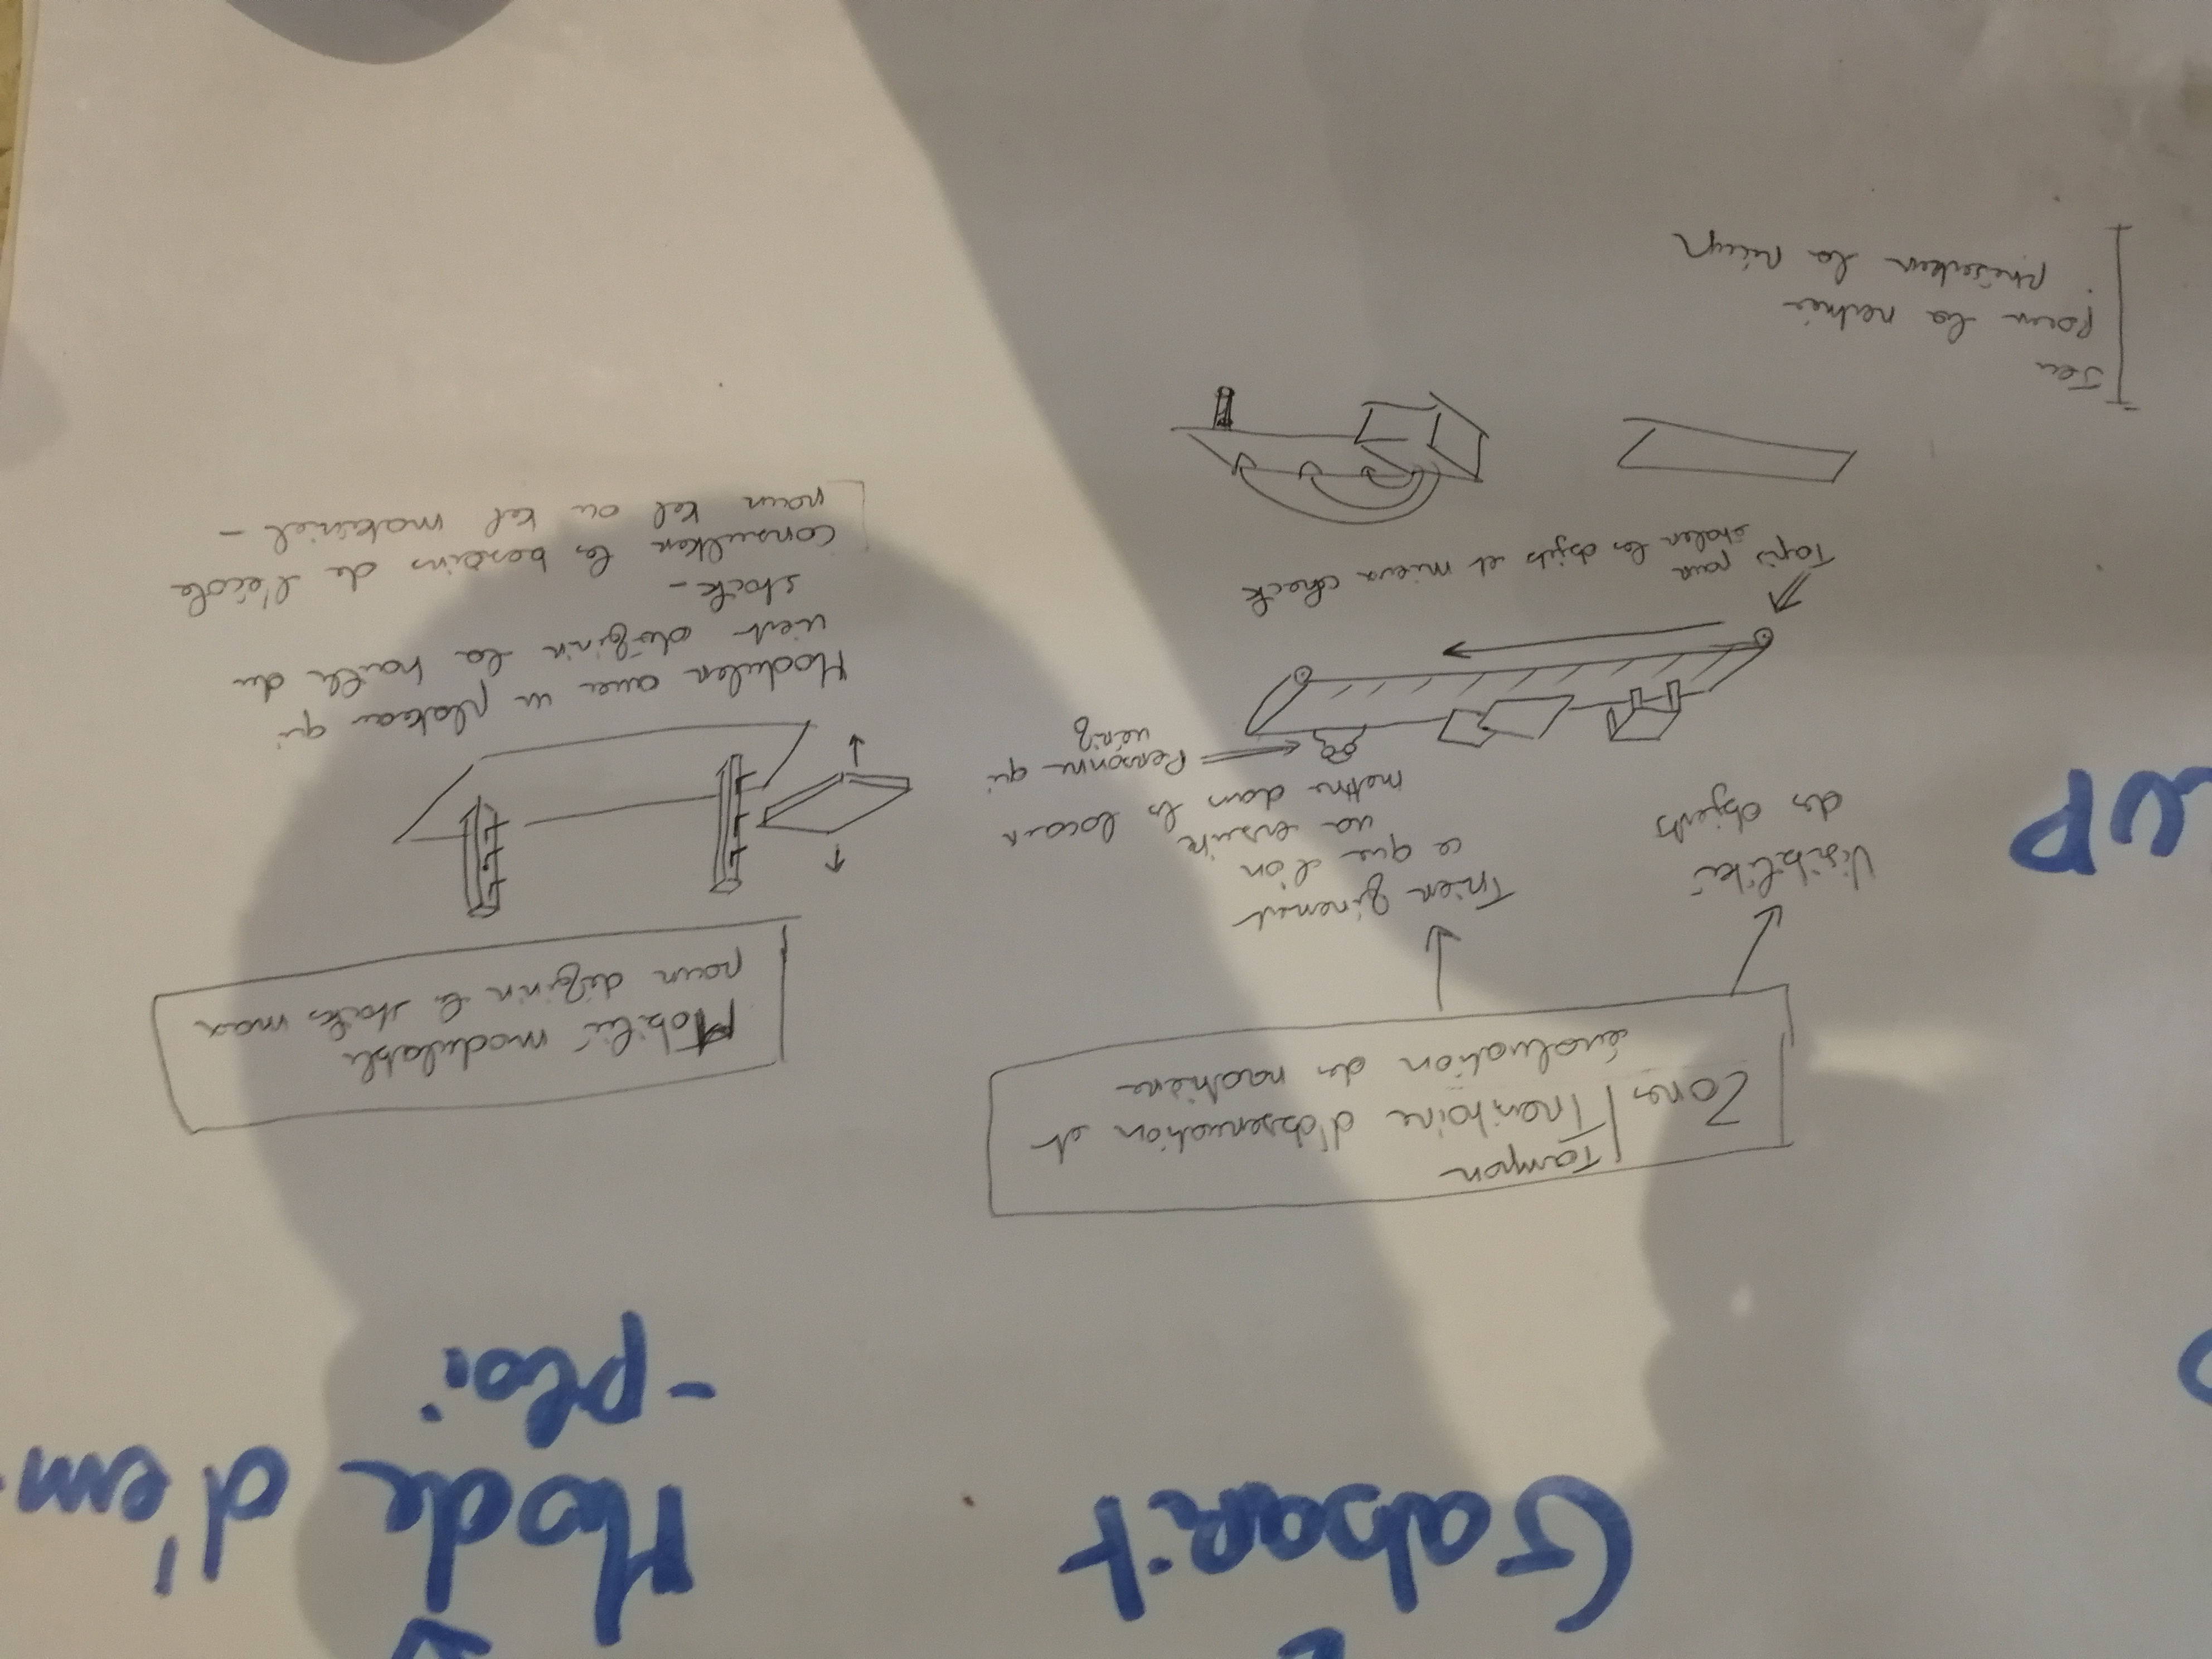 Gabarit
Mode d'em
-ploi
Tampon
Zones Transitoire d'observation et
évaluation des matière
Visibilité
des objets
Trier finement
ce que l'on
va ensuite
mettre dans les locaux
Personne qui
vérif
Tapis pour
étaler les objets et mieux check
Jeu
Pour la
présenter la
Mobilié modulable
pour définir le stocks max
Moduler avec un plateau qui
vient définir la taille du
stock -
Consulter les besoins de l'école
pour tel ou tel matériel -